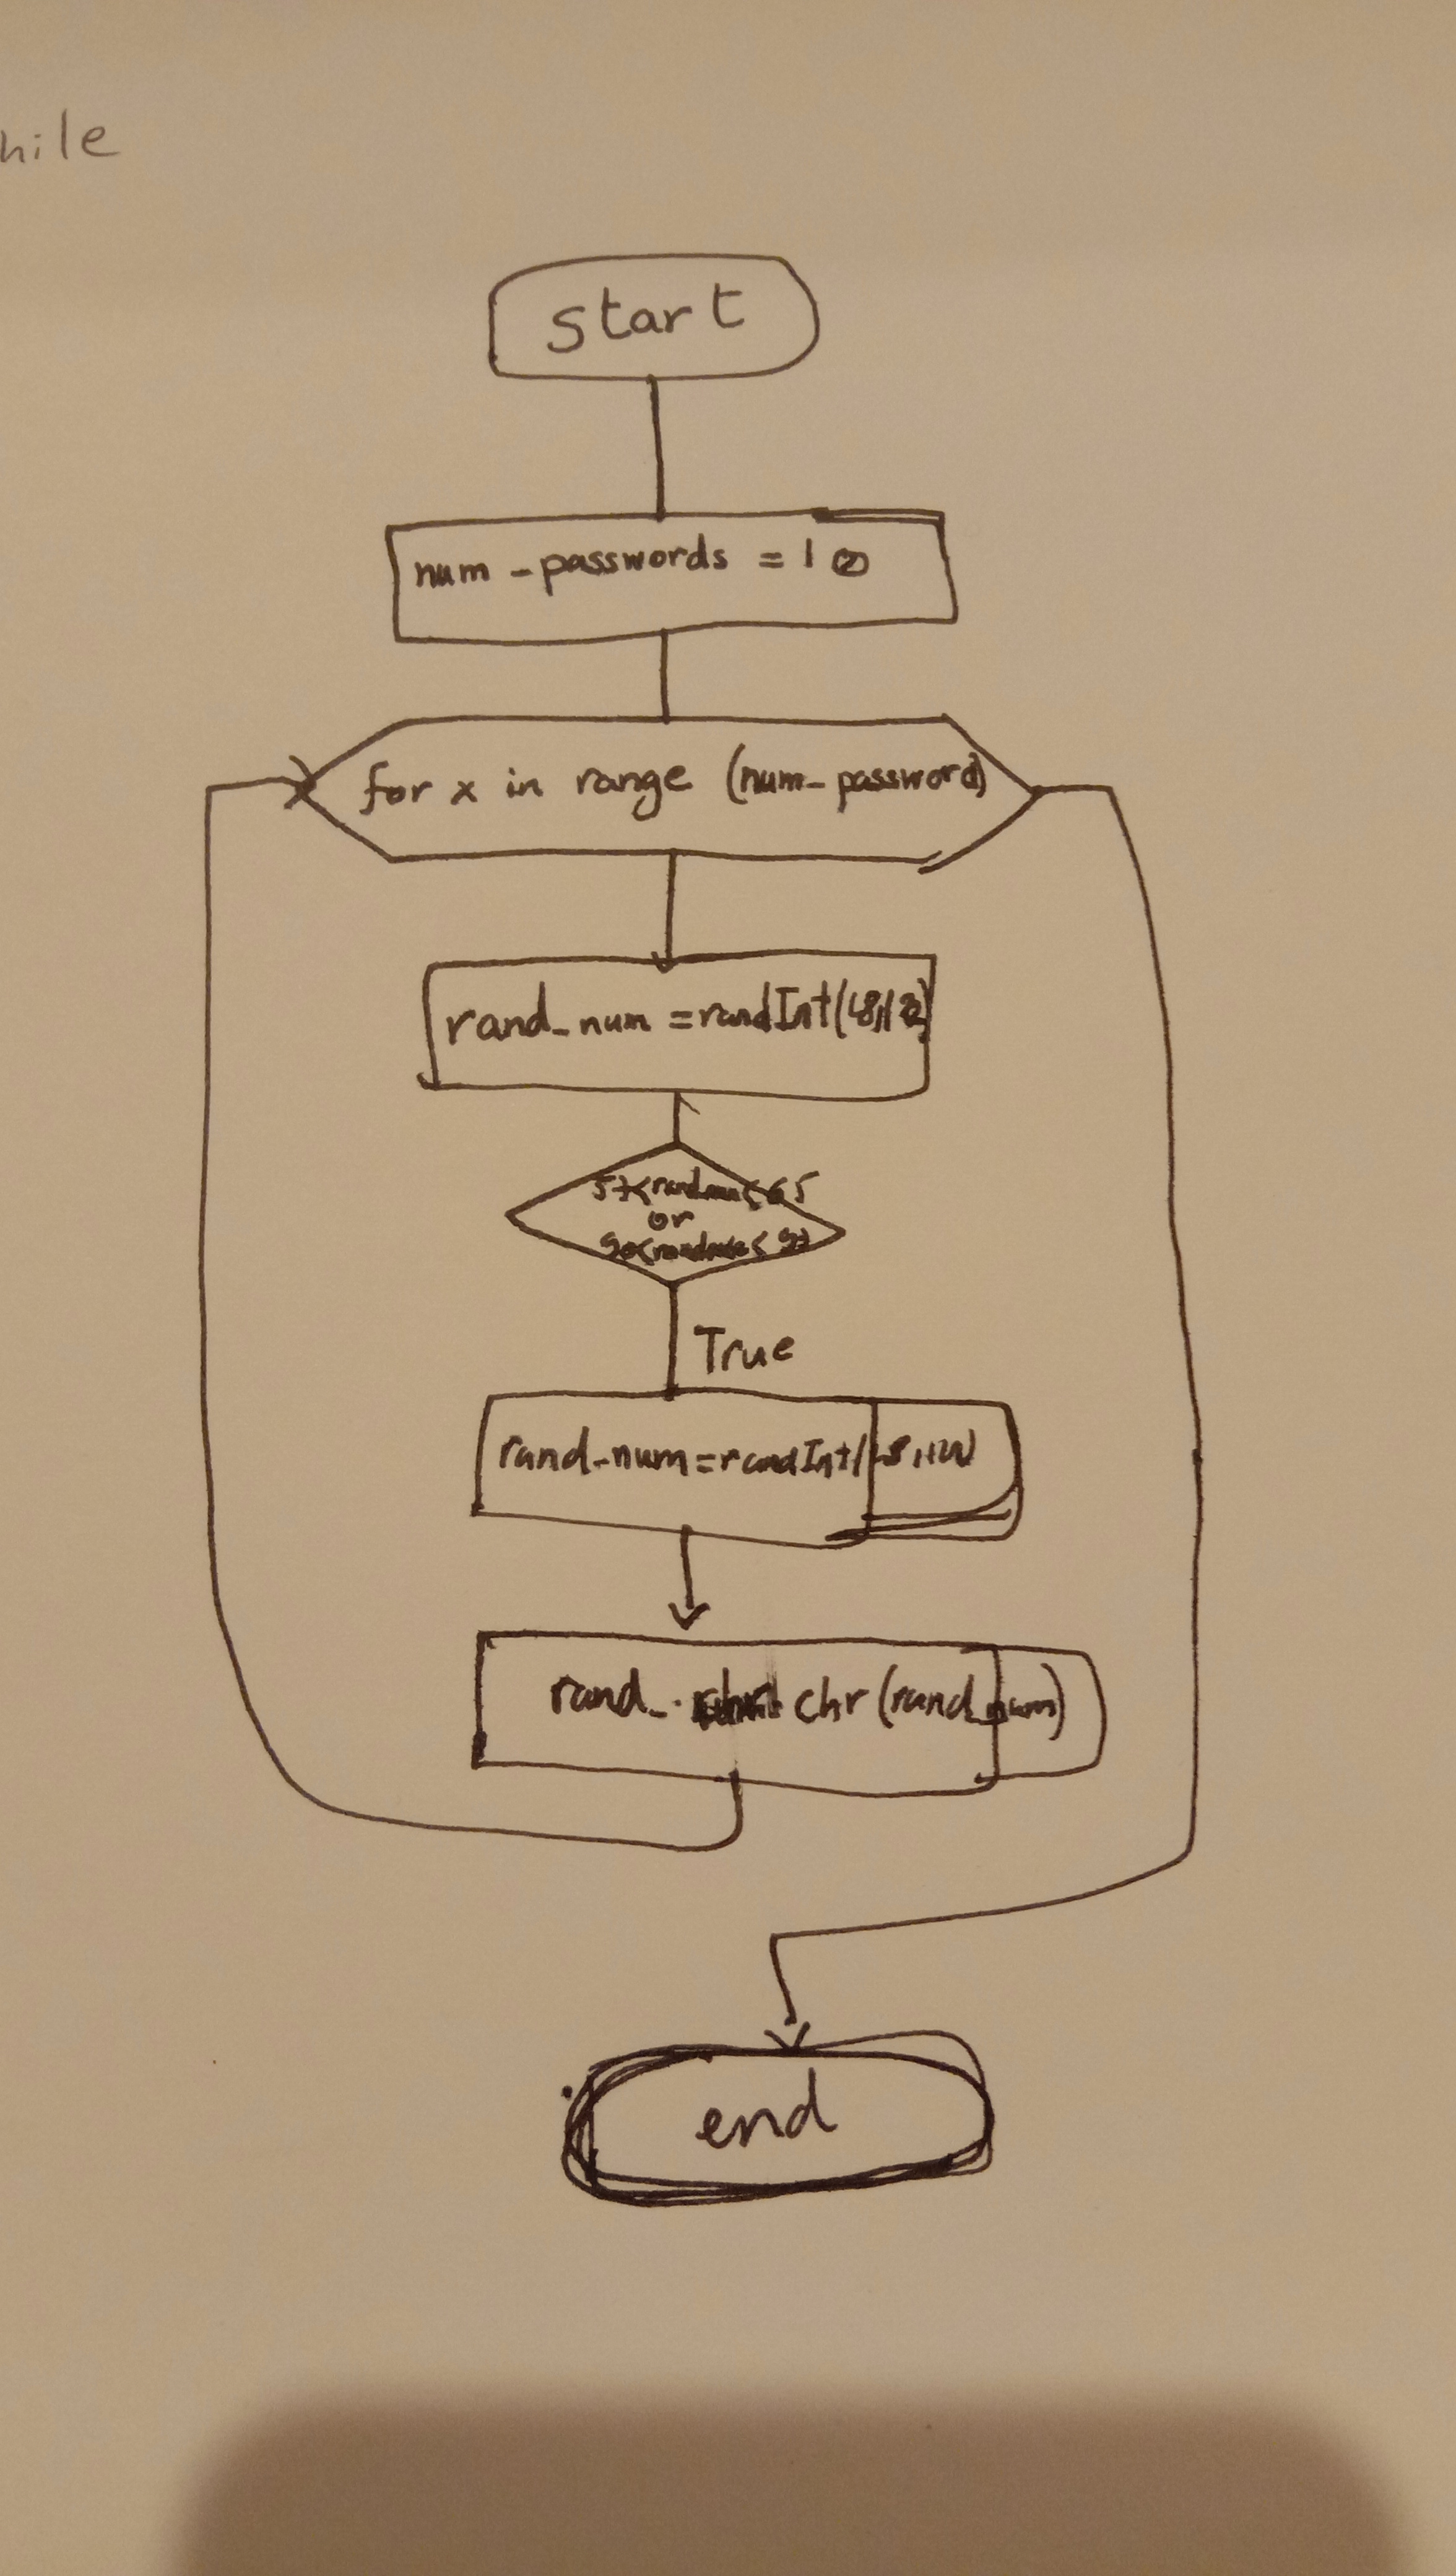 hile
start
num_passwords = 10
for x in range (num_password)
rand_num = randInt(48,122)
57<rand_num<65
or
90<rand_num<97
True
rand_num = randInt(48,122)
rand_ chr (rand_num)
end